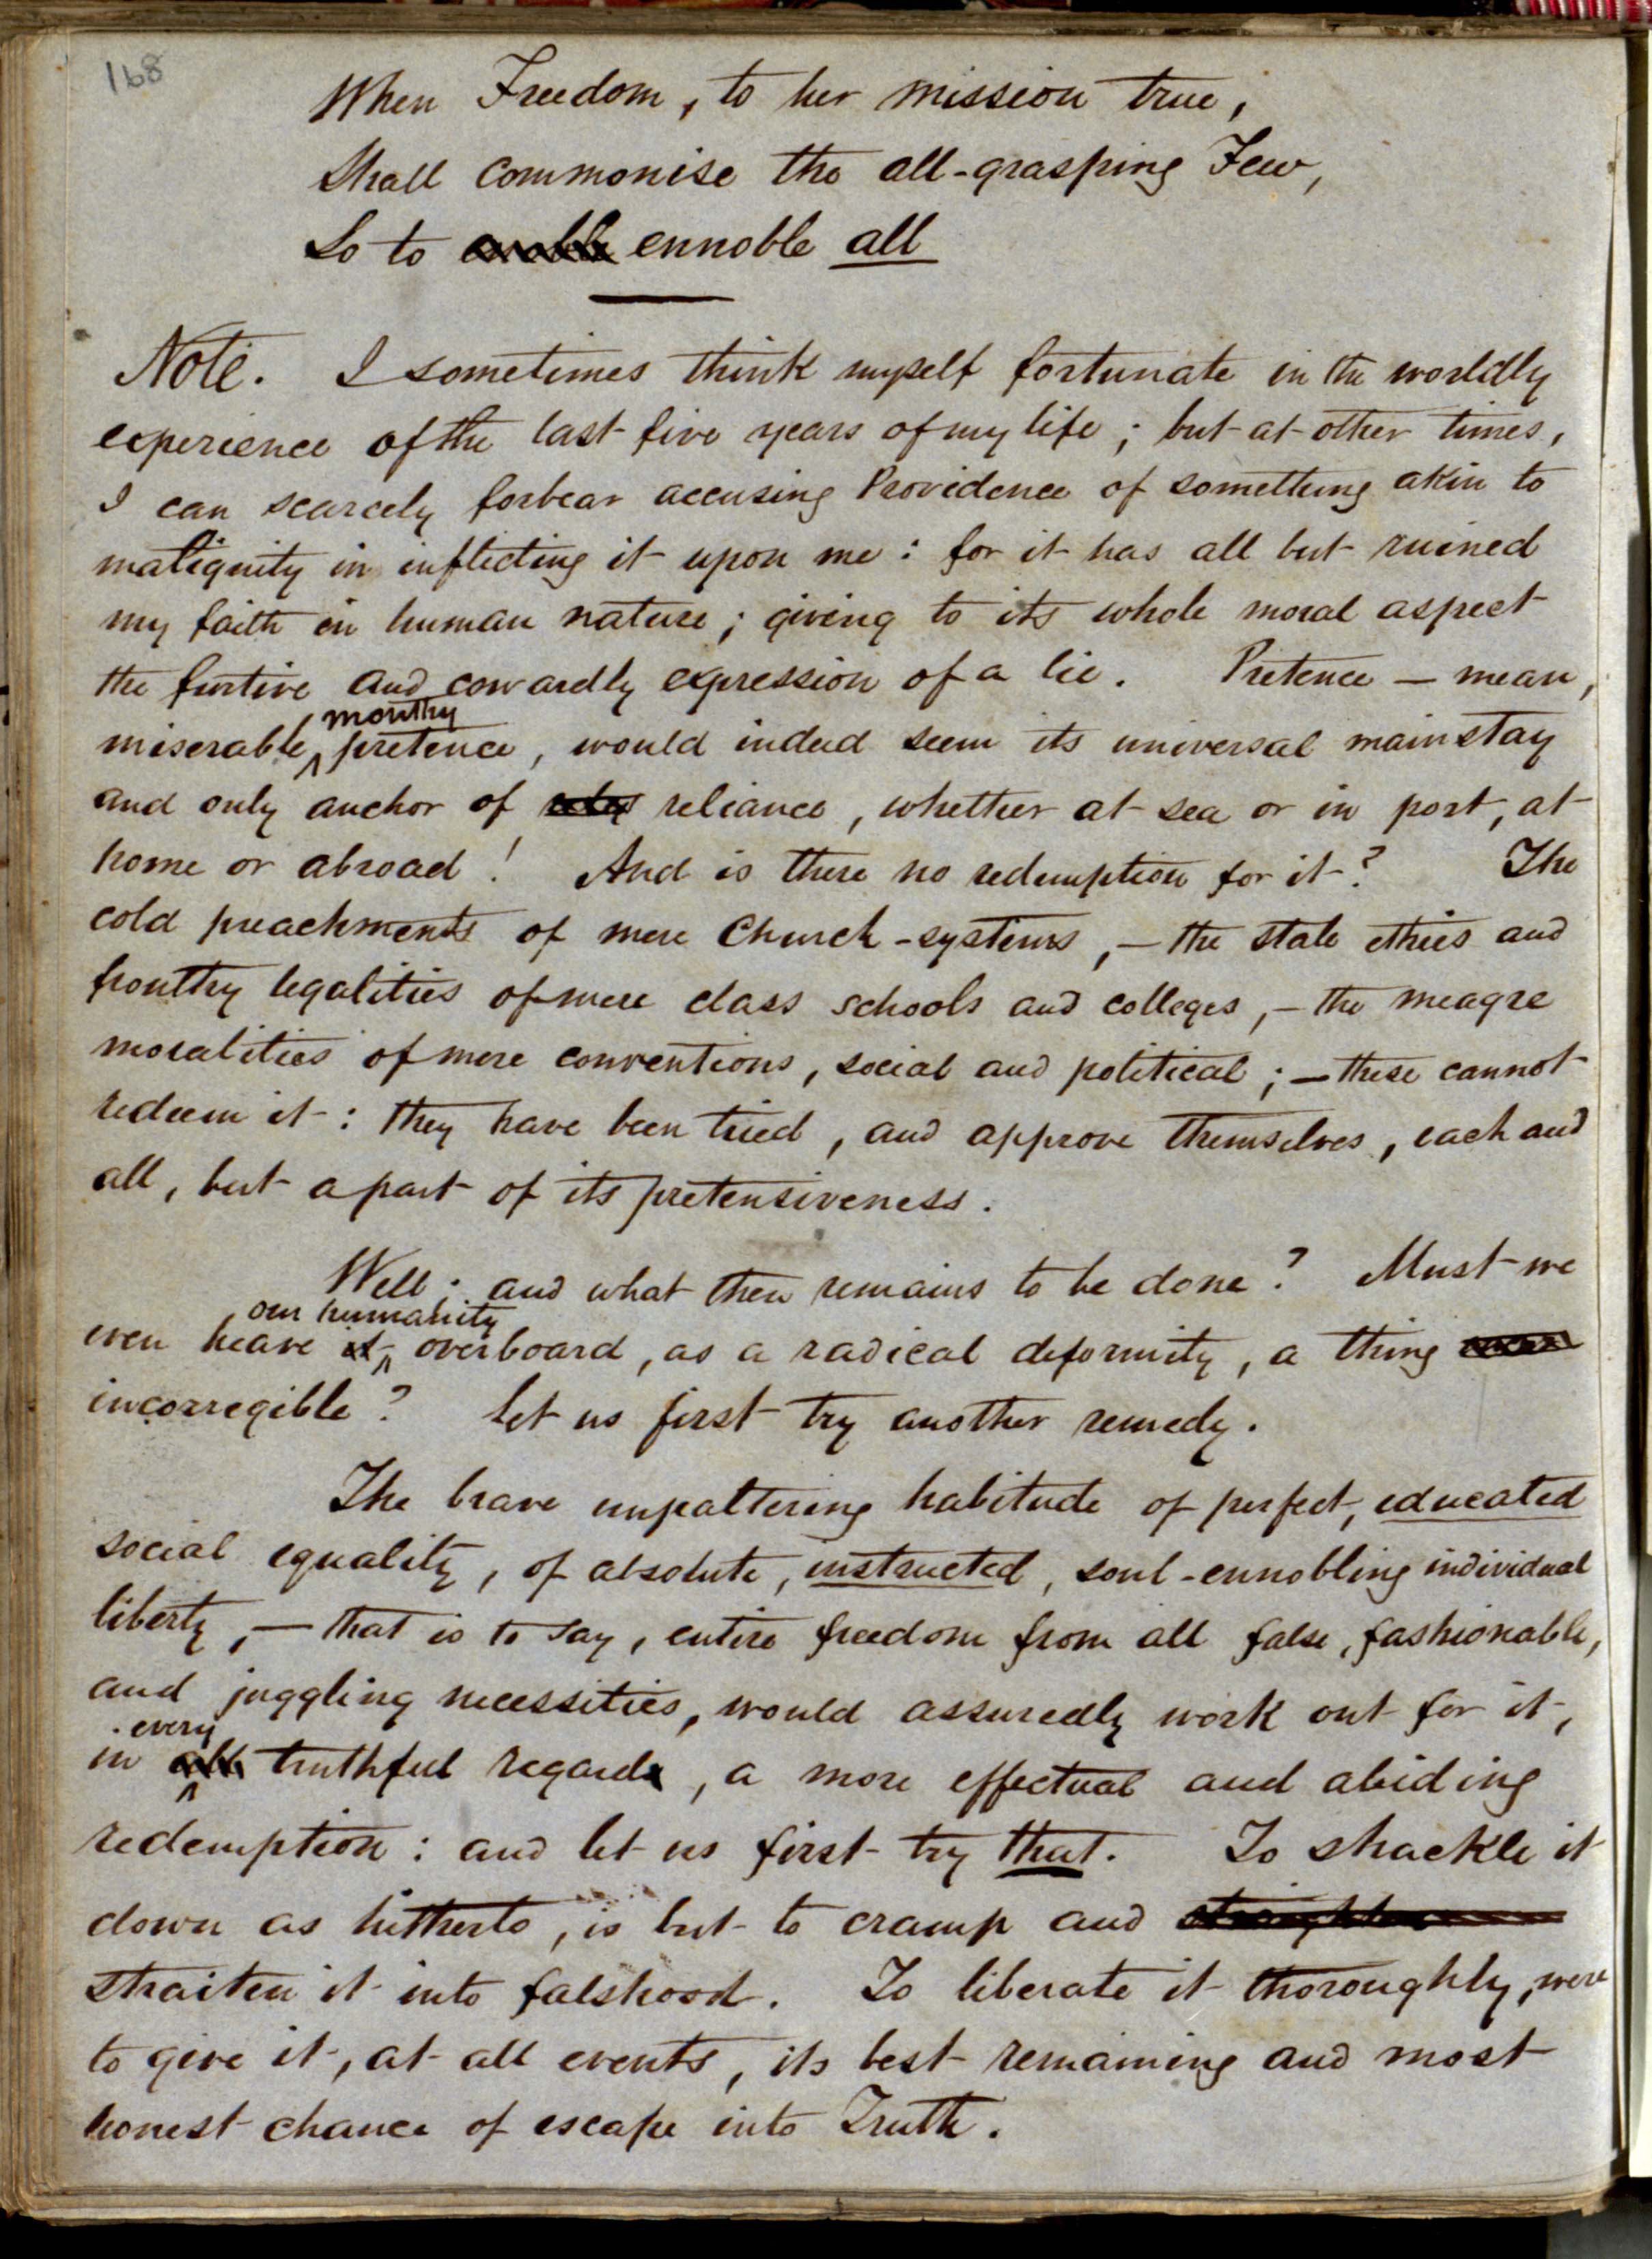 168
When Freedom, to her mission true,
Shall commonise the all-grasping Few,
So to enoble ennoble all
Note. I sometimes think myself fortunate in the worldly
experience of the last five years of my life; but at other times,
I can scarcely forbear accusing Providence of something akin to
malignity in inflicting it upon me: for it has all but ruined
my faith in human nature; giving to its whole moral aspect
the furtive and cowardly expression of a lie. Pretence — mean,
mouthy
miserable, pretence, would indeed seem its universal mainstay
and only anchor of reliance, whether at sea or in port, at
home or abroad! And is there no redemption for it? The
cold preachments of mere Church-systems, — the stale ethics and
frouthy legalities of mere class schools and colleges, — the meagre
moralities of mere conventions, social and political; — these cannot
redeem it: they have been tried, and approve themselves, each and
all, but a part of its pretensiveness.
Well; and what then remains to be done? Must we
our humanity
even heave it overboard, as a radical deformity, a thing
incorregible? Let us first try another remedy.
The brave unpaltering habitude of perfect, educated
social equality, of absolute, instructed, soul-ennobling individual
liberty, — that is to say, entire freedom from all false, fashionable,
and juggling necessities, would assuredly work out for it,
every
in all truthful regard, a more effectual and abiding
redemption: and let us first try that. To shackle it
down as hitherto, is but to cramp and straighten
straiten it into falshood. To liberate it thoroughly, were
to give it, at all events, its best remaining and most
honest chance of escape into Truth.